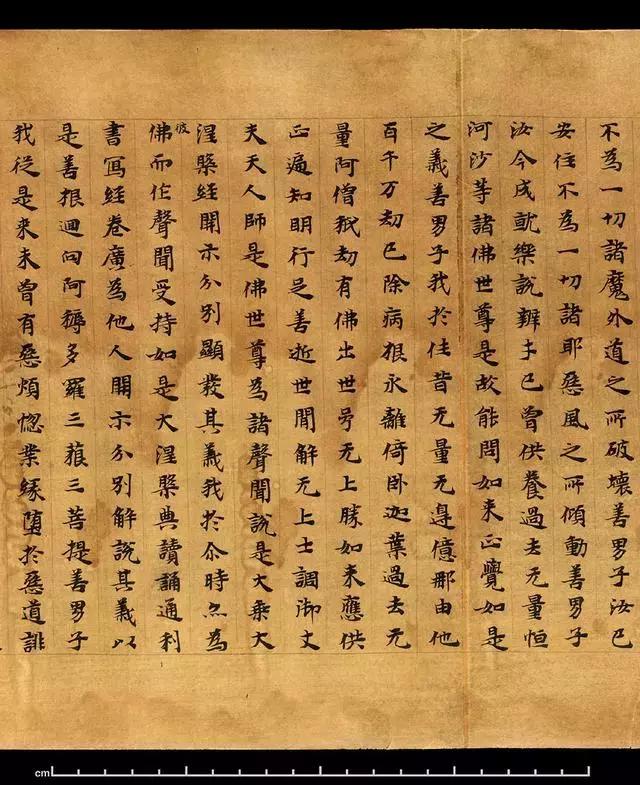 不為一切諸魔外道之所破壞善男子汝已
安住不為一切諸耶惡風之所傾動善男子
汝今成就樂說辯才已曾供養過去无量恒
河沙等諸佛世尊是故能問如来正覺如是
之義善男子我於往昔无量无邊億那由他
百千万劫已除病根永離倚卧迦葉過去无
量阿僧祇劫有佛出世号无上勝如来應供
正遍知明行足善逝世間解无上士調御丈
夫天人師是佛世尊為諸聲聞說是大乗大
涅槃經開示分別顯發其義我於尒時亦為
彼佛而作聲聞受持如是大涅槃典讀誦通利
書寫經卷廣為他人開示分別解說其義以
是善根迴向阿耨多羅三藐三菩提善男子
我従是来未曾有惡煩惱業緣堕於惡道誹
cm